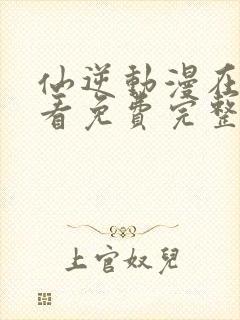 仙逆動漫在
看免費完整
上官奴兒